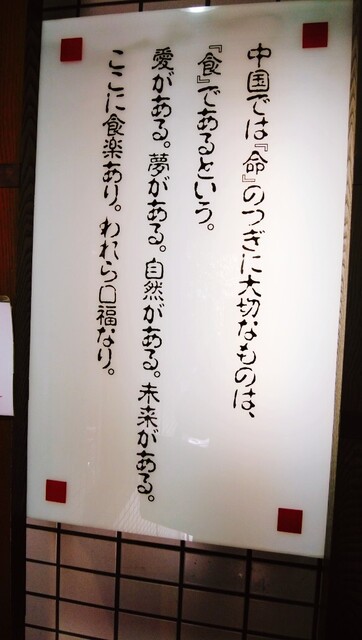 中国では『命』のつぎに大切なものは、
『食』であるという。
愛がある。夢がある。自然がある。未来がある。
ここに食楽あり。われら口福なり。